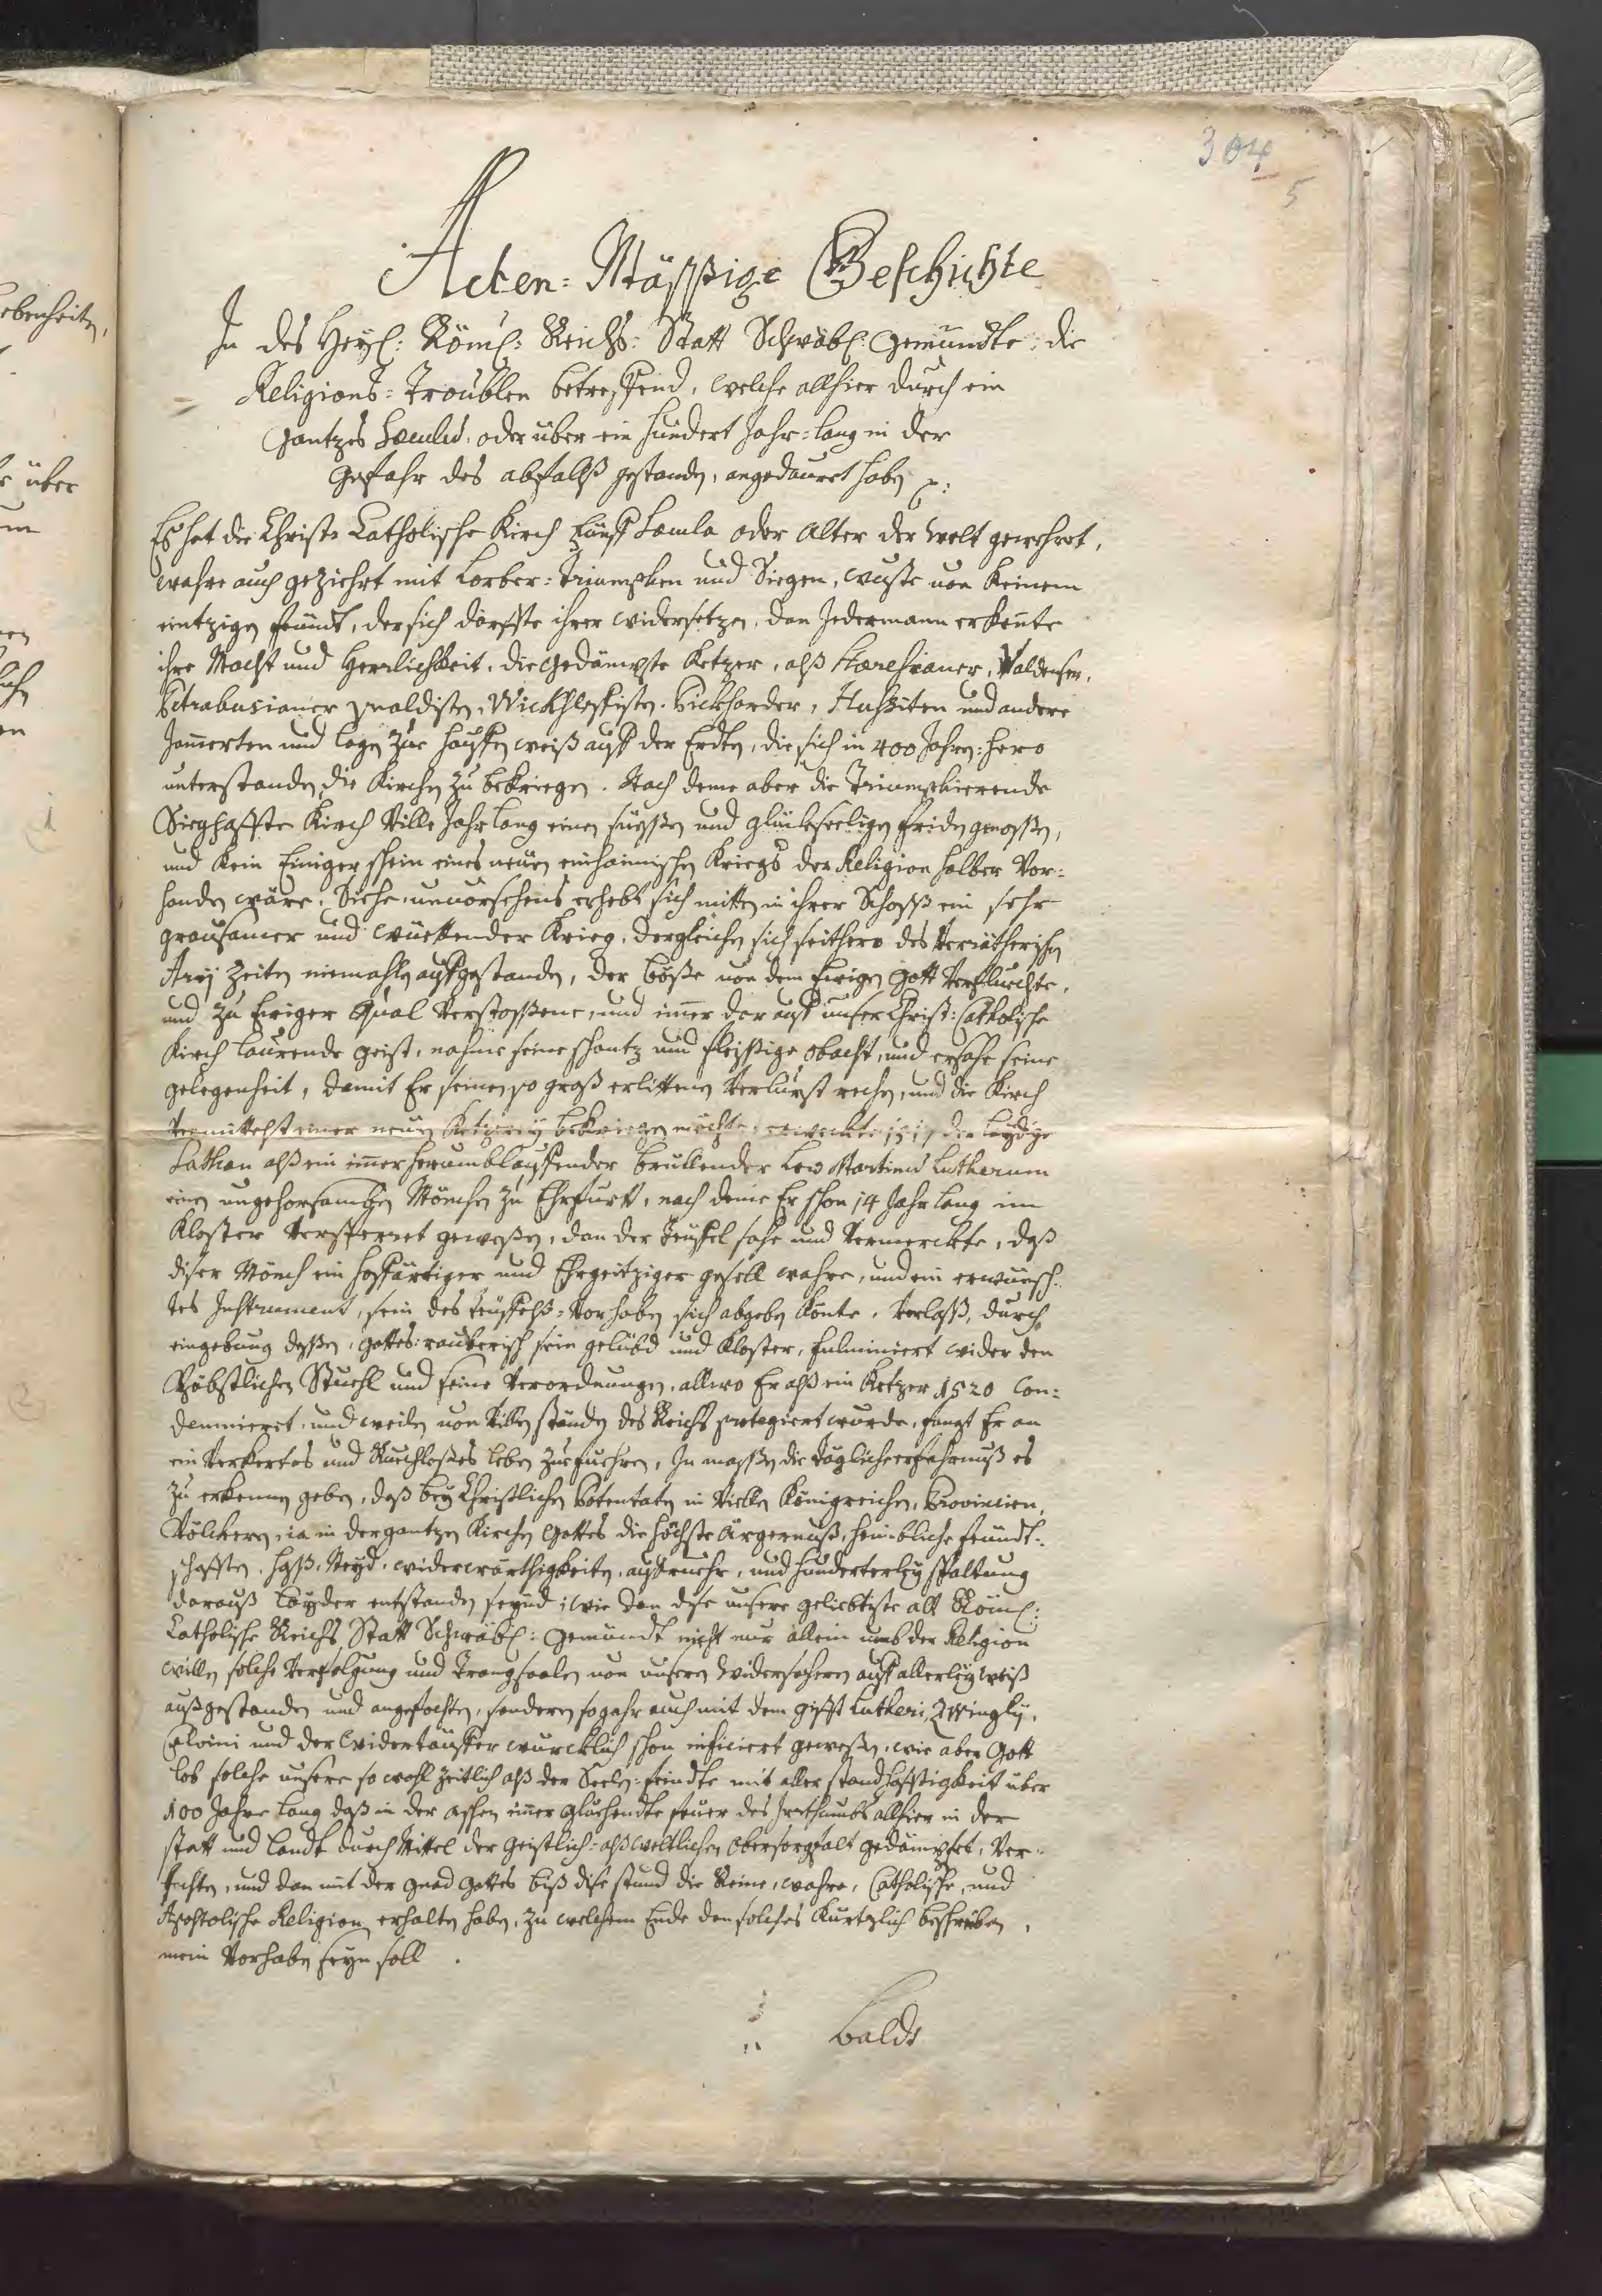 304
5
Acten=Mässige Geschichte
In des Heyl: Röml: Reichs=Statt Schwäbl: Gemündte: die
Religions=Troublen betreffend, welche allhier durch ein
gantzes Sæculum, oder über ein hundert Jahr=lang in der
gefahr des abfallß gestanden, angedauret haben
Es hat die Christ: Catholische Kirch fünff Sæcula oder Alter der Welt gewehret,
wahre auch geziehrt mit Lorber=Triumphen und Siegen, wuste von keinem
eintzigen feündt, der sich dörffte ihrer widersetzen, dan Jedermann erkente
ihre Macht und Herrlichkeit. die gedämpfte Ketzer, alß Valdenser,
Petrabusianer Wickhleffisten, Pickharder, Hussiten und andere
Jamerten und lagen zur hauffen weiß auff der Erdten, die sich in 400 Jahren=hero
unterstanden die Kirchen zu bekriegen. Nach deme aber die Triumphierende
Sieghaffte Kirch Ville Jahr lang einen süessen und glückseeligen friden genossen,
und kein Einiger schein eines neüen einhaimischen Kriegs der Religion halber Vor=
handen wäre. Siehe unvorsehens erhebt sich mitten in ihrer Schoss ein sehr
grausamer und wüettender Krieg, dergleichen sich seithero des Verrätherischen
Arij Zeiten niemahlen auffgestanden, der böße von dem Ewigen Gott Verfluechte,
und zu Ewiger Qual Verstossene, und imer dar auff unser Christ: Catholische
Kirch laurende geist, nahme seine schantz und fleissige obacht, und ersahe seine
gelegenheit, damit Er seinen so groß erlittenen Verlurst rechen, und die Kirch
Vermittelst einer neüen Ketzerey bekriegen möchte, erweckte 1517 der laydige
Sathan alß ein imer herumblauffender brullender Lew Martinum Lutherum
einen ungehorsamben Mönchen zu Ehrfurtt, nach deme Er schon 14 Jahr lang im
Kloster Versperret geweßen, dan der Teüffel sahe und Vermerckte, daß
diser Mönch ein hoffärtiger und Ehrgeitziger gesell wahre, und ein erwünsch=
tes Instrument, sein des teüffelß=Vorhaben sich abgeben könte. Verlaßt, durch
eingebung dessen, gottes=rauberisch sein gelübd und Kloster, fulminiert wider den
Päbstlichen Stuehl und seine Verordnungen, allwo Er alß ein Ketzer 1520 Con=
demnieret, und weilen von Villen ständen des Reichs protegiert wurde, fangt Er an
ein Verkertes und Ruechloßes leben zue fuehren, In massen die täglich erfahrnuß es
zu erkennen geben, daß bey Christlichen Potentaten in Viellen Königreichen, Provincien,
Völckern, ia in der gantzen Kirchen Gottes die höchste Ärgernuß, heimbliche feündt=
schafften, Haß, Neyd, widerwärthigkeiten, auffruehr, und hunderterley spaltung
darauß layder entstanden seynd; wie dan dise unsere geliebteste alt Röml:
Catholische Reichs Statt Schwäbl: Gemündt nicht nur allein umb der Religion
willen solche Verfolgung und Trangsaalen von unseren Widersachern auff allerley weiß
außgestanden und angefochten, sondern sogahr auch mit dem gifft Lutheri, Zwinglij,
Calvini und der Widertäuffer würcklich schon inficiert geweßen, wie aber Gott
lob solche unsere so wohl zeitlich alß der Seelen=feindte mit aller standhafftigkeit über
100 Jahre lang daß in der aschen imer gluehendte feuer des Irrthumbs allhier in der
statt und Landt durch Mittel der geistlich= alß weltlichen obersorgfalt gedämpfet, Ver=
fechten, und dan mit der gnad Gottes biß dise stund die Reine, wahre, Catholische, und
Apostolische Religion erhalten haben, zu welchem Ende den solches kurtzlich beschreiben,
mein Vorhaben seyn soll.
Baldt